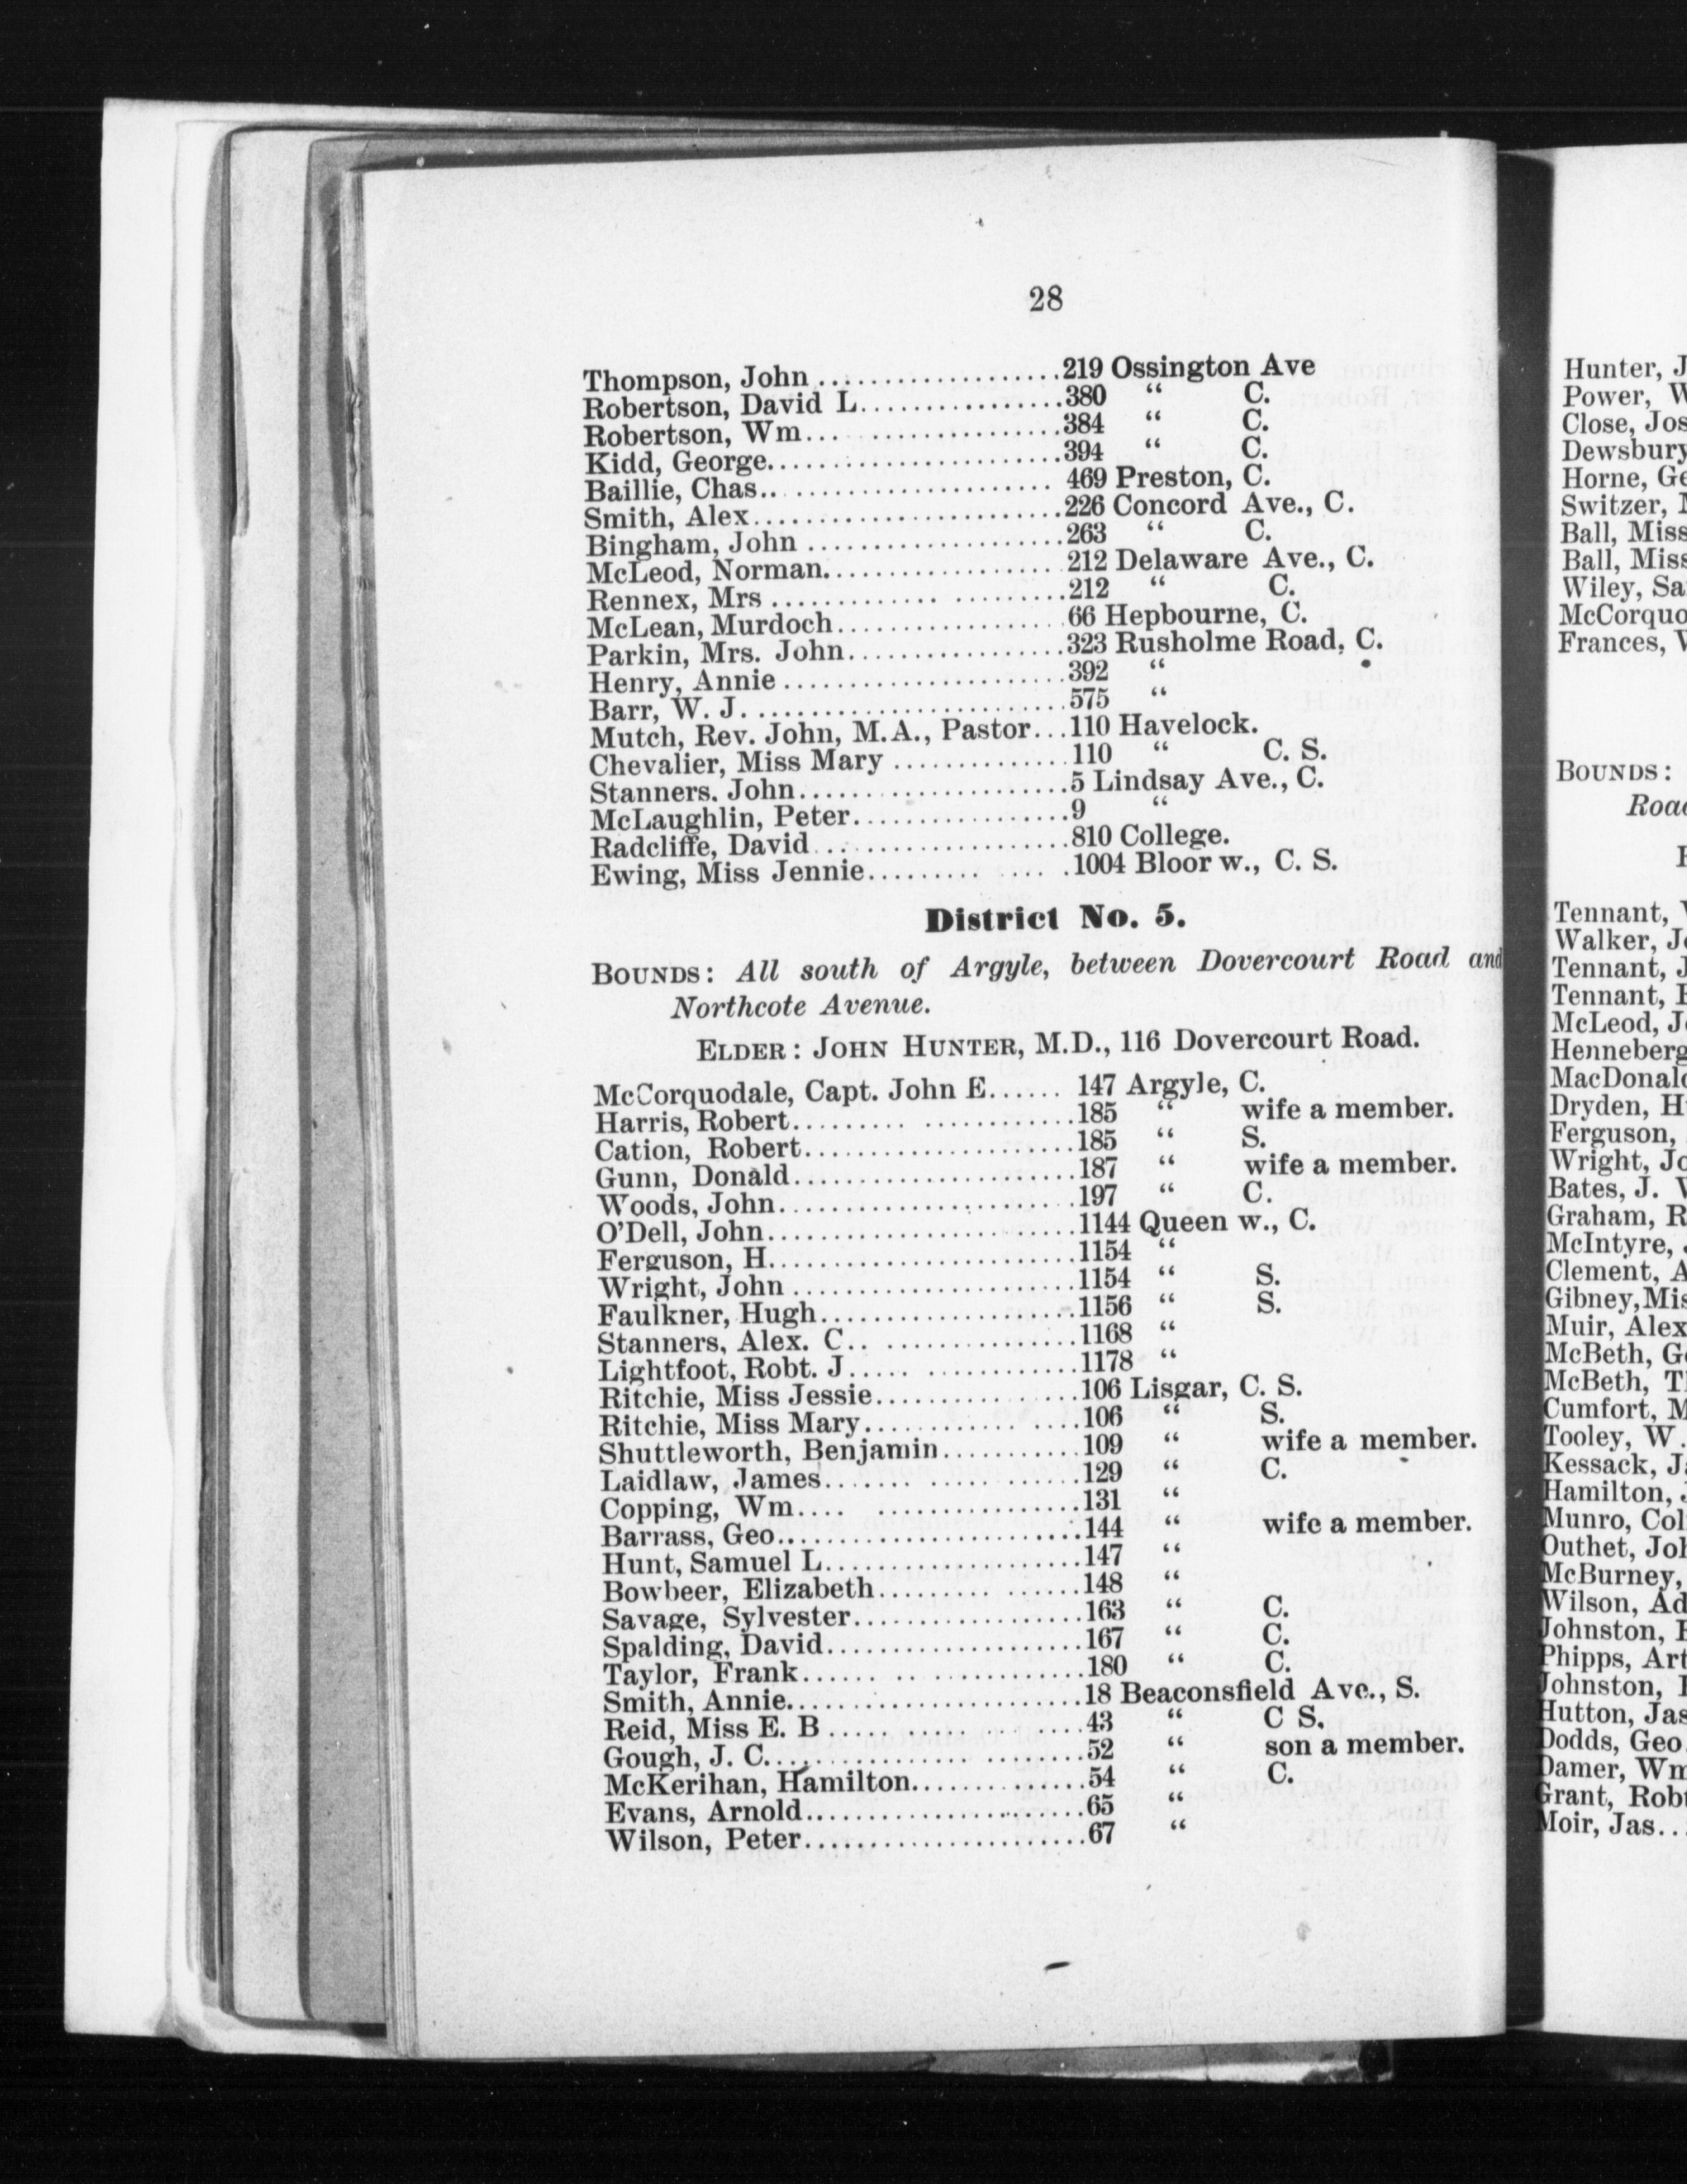 28
Thompson, John ................... 219 Ossington Ave
Robertson, David L................ 380 “ C.
Robertson, Wm... .................. 384 “ C.
Kidd, George....................... 394 “ C.
Baillie, Chas.. ..................... 469 Preston, C.
Smith, Alex........................ 226 Concord Ave., C.
Bingham, John .................... 263 “ C.
McLeod, Norman................... 212 Delaware Ave., C.
Rennex, Mrs ............. ......... 212 “ C.
McLean, Murdoch.................. 66 Hepbourne, C.
Parkin, Mrs. John................. 323 Rusholme Road, C.
Henry, Annie ...................... 392 “
Barr, W. J......................... 575 “
Mutch, Rev. John, M.A., Pastor... 110 Havelock.
Chevalier, Miss Mary .............. 110 “ C. S.
Stanners. John..................... 5 Lindsay Ave., C.
McLaughlin, Peter................. 9 “
Radcliffe, David .................... 810 College.
Ewing, Miss Jennie......... .... . 1004 Bloor w., C. S.
District No. 5.
BOUNDS: All south of Argyle, between Dovercourt Road and
Northcote Avenue.
ELDER: JOHN HUNTER, M.D., 116 Dovercourt Road.
McCorquodale, Capt. John E...... 147 Argyle, C.
Harris, Robert......... ............ 185 “ wife a member.
Cation, Robert..................... 185 “ S.
Gunn, Donald...................... 187 “ wife a member.
Woods, John....................... 197 “ C.
O'Dell, John........................ 1144 Queen w., C.
Ferguson, H........................ 1154 “
Wright, John ...................... 1154 “ S.
Faulkner, Hugh.................... 1156 “ S.
Stanners, Alex. C.. ................ 1168 “
Lightfoot, Robt. J..... ............ 1178 “
Ritchie, Miss Jessie................ 106 Lisgar, C. S.
Ritchie, Miss Mary............ .... 106 “ S.
Shuttleworth, Benjamin........... 109 “ wife a member.
Laidlaw, James....... ............ 129 “ C.
Copping, Wm.... ................ 131 “
Barrass, Geo........................ 144 “ wife a member.
Hunt, Samuel L.................... 147 “
Bowbeer, Elizabeth......... ...... 148 “
Savage, Sylvester.................. 163 “ C.
Spalding, David.................... 167 “ C.
Taylor, Frank...... .. ............. 180 “ C.
Smith, Annie....................... 18 Beaconsfield Ave., S.
Reid, Miss E. B ..... ...... ...... 43 “ C S.
Gough, J. C................ ........ 52 “ son a member.
McKerihan, Hamilton.............. 54 “ C.
Evans, Arnold...................... 65 “
Wilson, Peter...................... 67 “
Hunter, J
Power, W
Close, Jos
Dewsbury
Horne, Ge
Switzer,
Ball, Miss
Ball, Miss
Wiley, Sa
McCorquo
Frances,
BOUNDS:
Road
Tennant,
Walker, Jo
Tennant, J
Tennant,
McLeod, Jo
Henneberg
MacDonald
Dryden, H
Ferguson,
Wright, Jo
Bates, J.
Graham, R
McIntyre,
Clement, A
Gibney, Mis
Muir, Alex
McBeth, Ge
McBeth, Th
Cumfort, M
Tooley, W.
Kessack, Ja
Hamilton,
Munro, Col
Outhet, Joh
McBurney,
Wilson, Ad
Johnston,
Phipps, Art
Johnston,
Hutton, Jas
Dodds, Geo.
Damer, Wm
Grant, Robt
Moir, Jas...